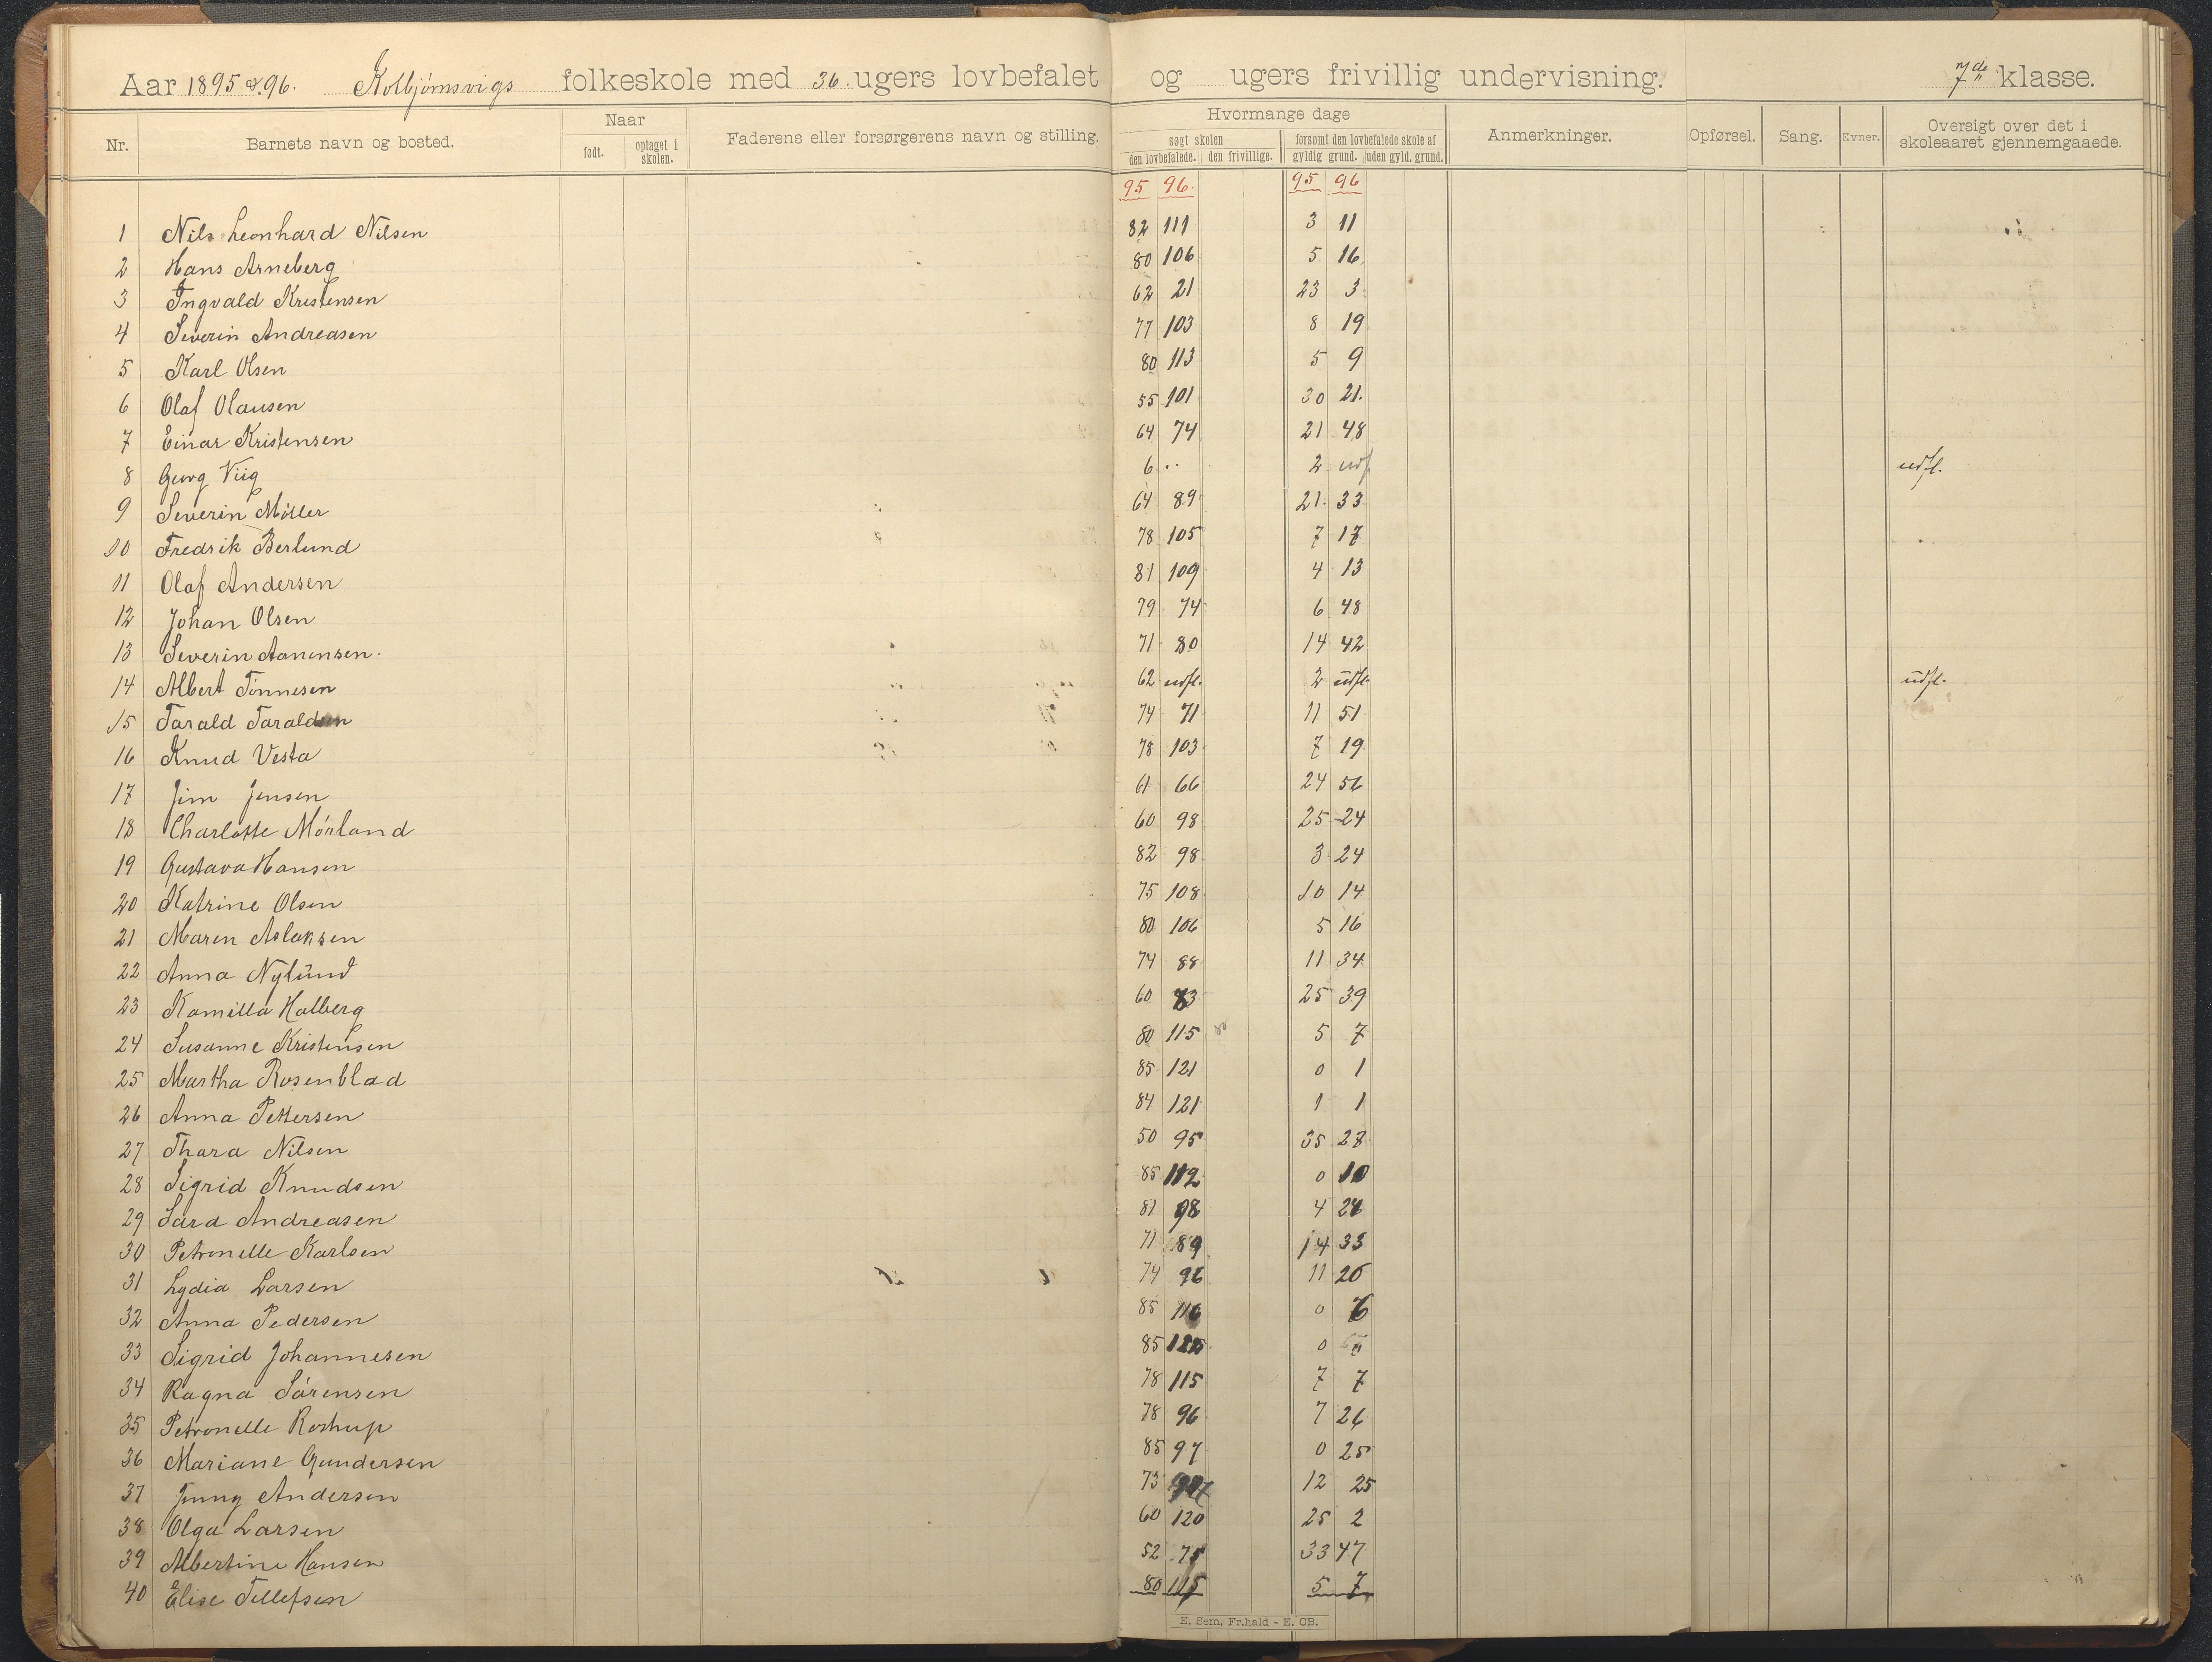 Aar 1895 & 96. Kolbjørnsvigs folkeskole med 36 ugers lovbefalet og ugers frivillig undervisning. 7de klasse.
Nr. Barnets navn og bosted. Naar født. optaget i skolen. Faderens eller forsørgerens navn og stilling. Hvormange dage søgt skolen den lovbefalede. den frivillige. forsømt den lovbefalede skole af gyldig grund. uden gyld. grund. Anmerkninger. Opførsel. Sang. Evner. Oversigt over det i skoleaaret gjennemgaaede.
95 96. 95 96
1 Nils Leonhard Nilsen 82 111 3 11
2 Hans Arneberg 80 106 5 16
3 Ingvald Kristensen 62 21 23 3
4 Severin Andreasen 77 103 8 19
5 Karl Olsen 80 113 5 9
6 Olaf Olausen 55 101 30 21.
7 Einar Kristensen 64 74 21 48
8 Georg Viig 6 .. 2 udf udfl.
9 Severin Møller 64 89 21. 33
10 Fredrik Berlund 78 105 7 17
11 Olaf Andersen 81 109 4 13
12 Johan Olsen 79 74 6 48
13 Severin Aanensen. 71 80 14 42
14 Albert Tønnesen 62 udfl. 2 udfl. udfl.
15 Tarald Taraldsen 74 71 11 51
16 Knud Vesta 78 103 7 19
17 Jim Jensen 61 66 24 56
18 Charlotte Mørland 60 98 25 24
19 Gustava Hansen 82 98 3 24
20 Katrine Olsen 75 108 10 14
21 Maren Aslaksen 80 106 5 16
22 Anna Nylund 74 88 11 34
23 Kamilla Halberg 60 83 25 39
24 Susanne Kristensen 80 115 5 7
25 Martha Rosenblad 85 121 0 1
26 Anna Pettersen 84 121 1 1
27 Thara Nilsen 50 95 35 28
28 Sigrid Knudsen 85 112 0 10
29 Sara Andreasen 81 98 4 24
30 Petronelle Karlsen 71 89 14 33
31 Lydia Larsen 74 96 11 26
32 Anna Pedersen 85 116 0 6
33 Sigrid Johannesen 85 0
34 Ragna Sørensen 78 115 7 7
35 Petronelle Rostrup 78 96 7 26
36 Mariane Gundersen 85 97 0 25
37 Jenny Andersen 73 12 25
38 Olga Larsen 60 120 25 2
39 Albertine Hansen 52 75 33 47
40 Elise Tellefsen 80 115 5 7
E. Sem, Fr.hald - E. CB.